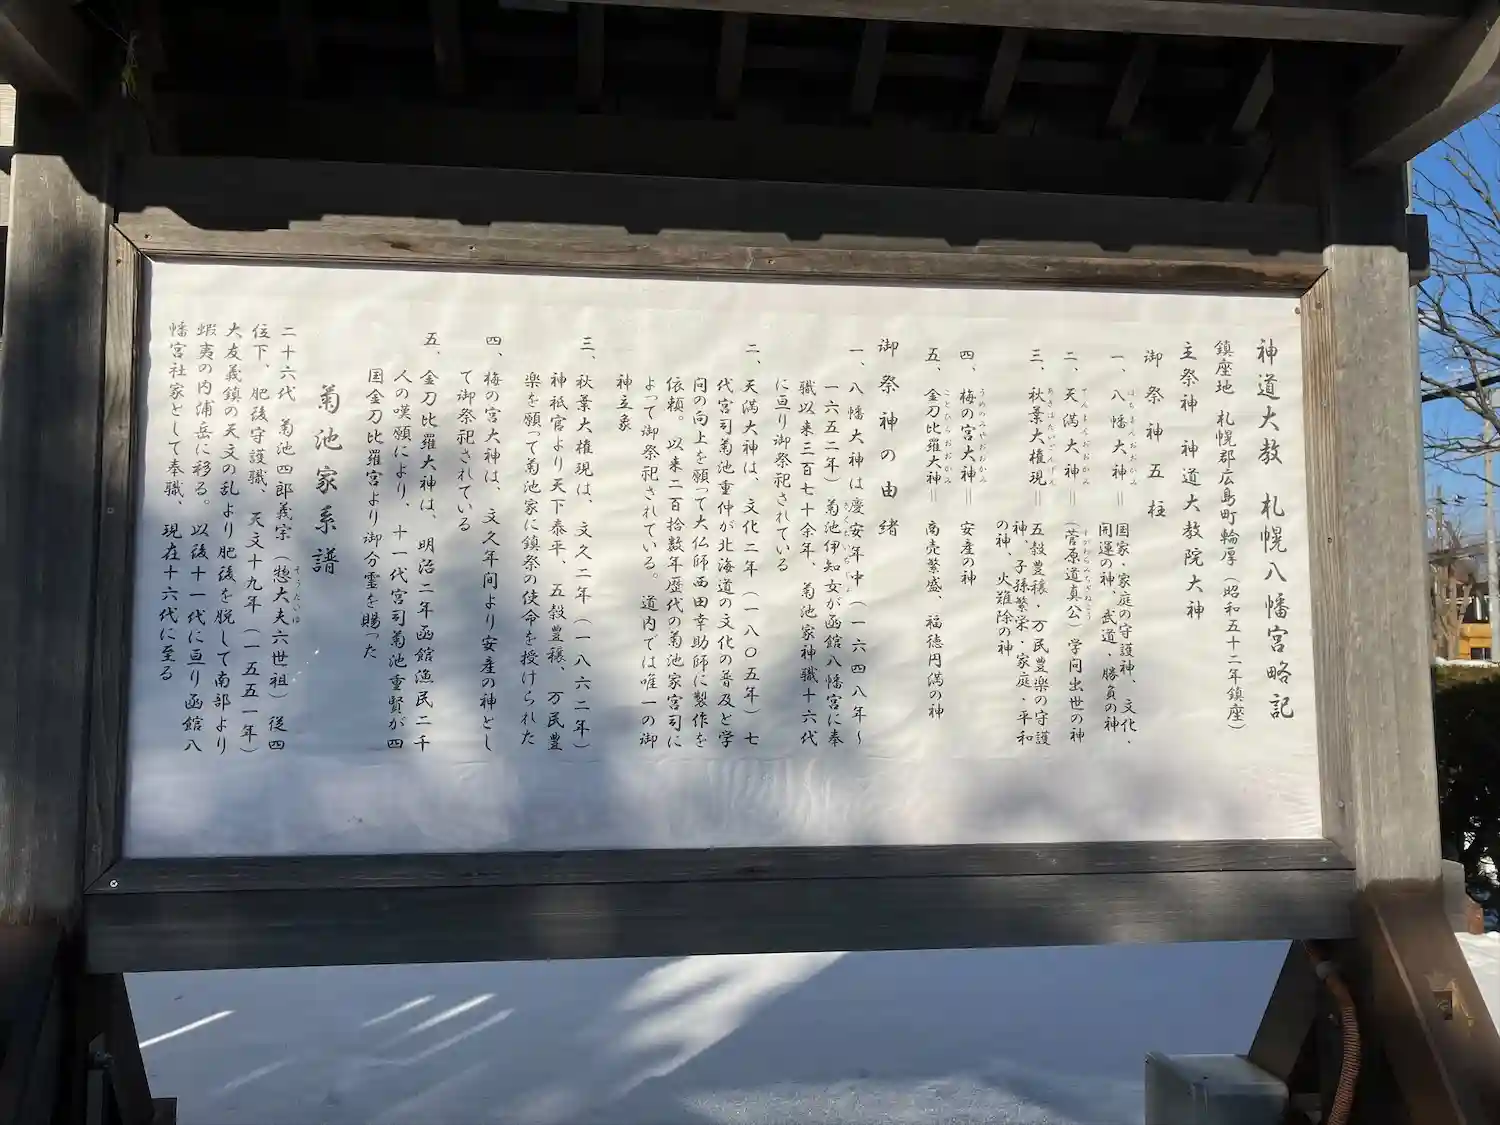 神道大教 札幌八幡宮略記
鎮座地 札幌郡広島町輪厚（昭和五十二年鎮座）
主祭神 神道大教院大神
御祭神五柱
一、八幡大神＝国家・家庭の守護神、文化・
開運の神、武道・勝負の神
二、天満大神＝（菅原道真公）学問出世の神
三、秋葉大権現＝五穀豊穣・万民豊楽の守護
神、子孫繁栄・家庭・平和
の神、火難除の神
四、梅の宮大神＝安産の神
五、金刀比羅大神＝商売繁盛、福徳円満の神
御祭神の由緒
一、八幡大神は慶安年中（一六四八年～
一六五二年）菊池伊知女が函館八幡宮に奉
職以来三百七十余年、菊池家神職十六代
に亘り御祭祀されている
二、天満大神は、文化二年（一八〇五年）七
代宮司菊池重仲が北海道の文化の普及と学
問の向上を願って大仏師西田幸助師に製作を
依頼。以来二百拾数年歴代の菊池家宮司に
よって御祭祀されている。道内では唯一の御
神立象
三、秋葉大権現は、文久二年（一八六二年）
神祇官より天下泰平、五穀豊穣、万民豊
楽を願って菊池家に鎮祭の使命を授けられた
四、梅の宮大神は、文久年間より安産の神とし
て御祭祀されている
五、金刀比羅大神は、明治二年函館漁民二千
人の嘆願により、十一代宮司菊池重賢が四
国金刀比羅宮より御分霊を賜った
菊池家系譜
二十六代 菊池四郎義宗（惣大夫六世祖）従四
位下、肥後守護職、天文十九年（一五五一年）
大友義鎮の天文の乱より肥後を脱して南部より
蝦夷の内浦岳に移る。以後十一代に亘り函館八
幡宮社家として奉職、現在十六代に至る